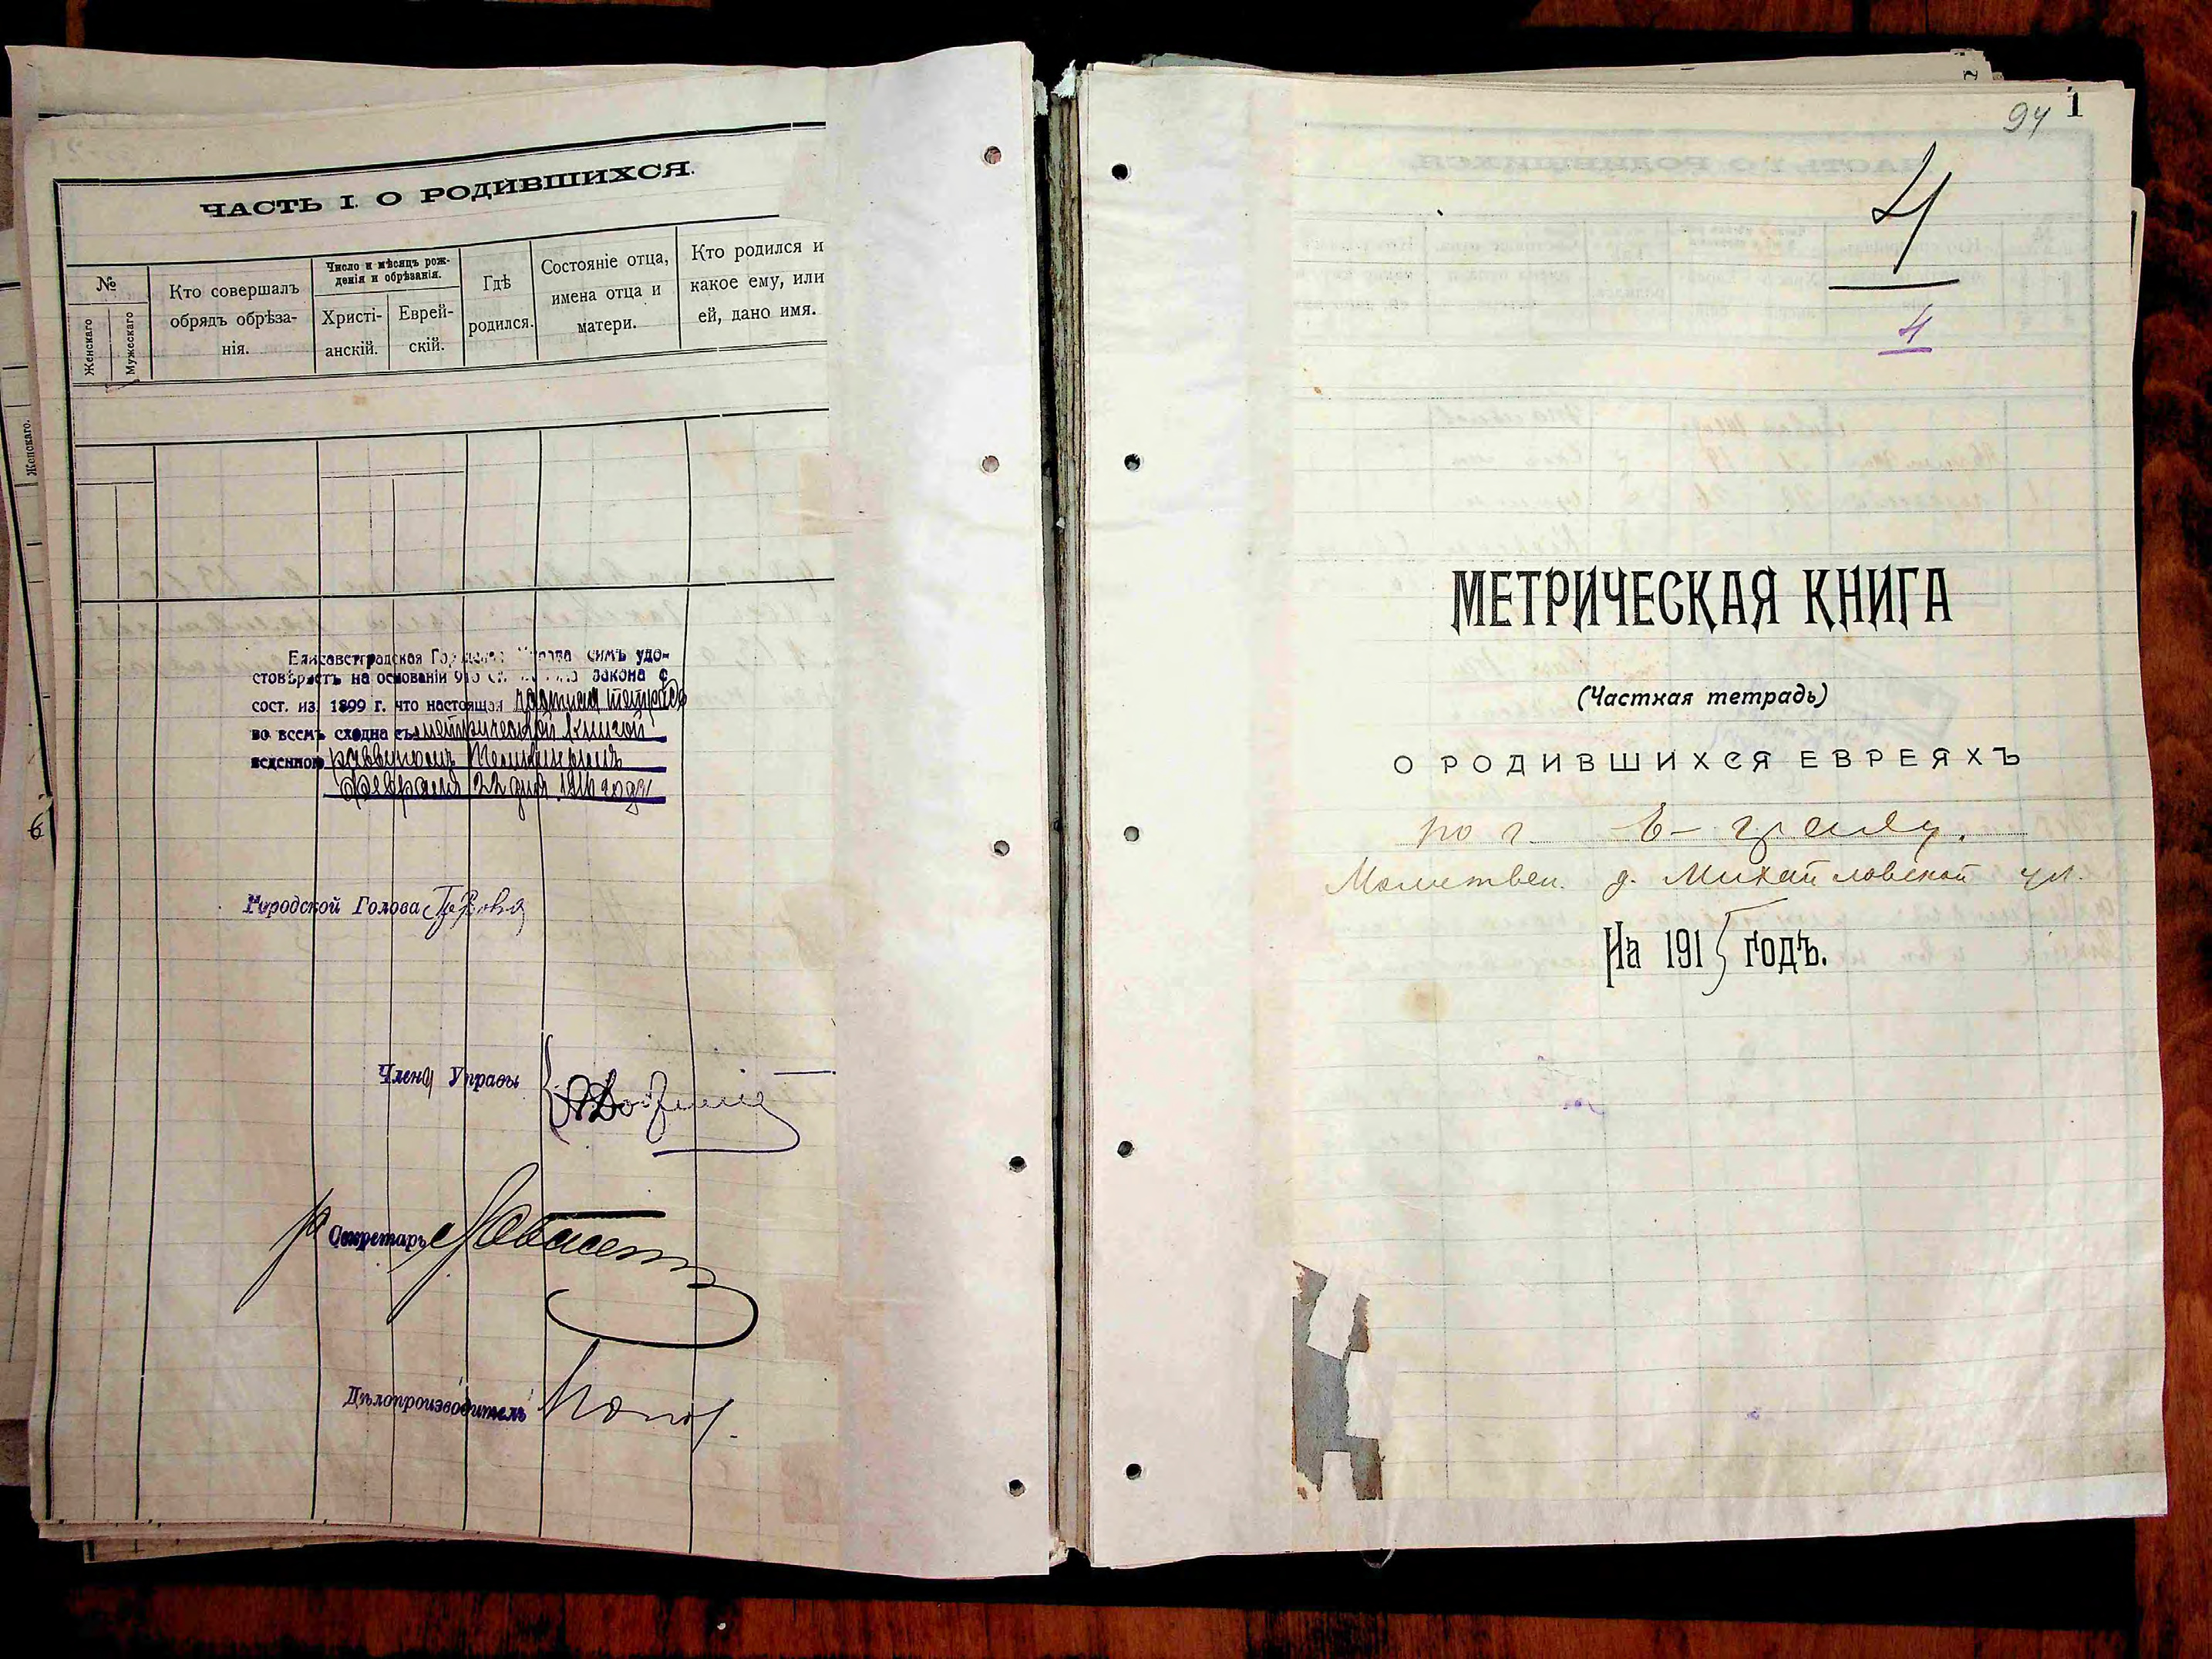 ЧАСТЬ I. О РОДИВШИХСЯ.
№
Женскаго
Мужескаго
Кто совершалъ
обрядъ обрѣза-
нія.
Число и мѣсяцъ рож-
денія и обрѣзанія.
Христі-
анскій.
Еврей-
скій.
Гдѣ
родился.
Состояніе отца,
имена отца и
матери.
Кто родился и
какое ему, или
ей, дано имя.
Женскаго.
6
Елисаветградская Управа симъ удо-
стовѣряетъ на основаніи закона с
сост. из. 1899 г. что настоящая частная тетрадь
во всемъ сходна съ метрической книгой
веденною раввиномъ
Февраля 22 дня 1916 года
Городской Голова
Члены Управы
Секретарь
Дѣлопроизводитель
94 1
4
4
МЕТРИЧЕСКАЯ КНИГА
(Частная тетрадь)
О РОДИВШИХСЯ ЕВРЕЯХЪ
по г. Е-граду.
Молитвен. д. Михайловской ул.
На 1915 годъ.